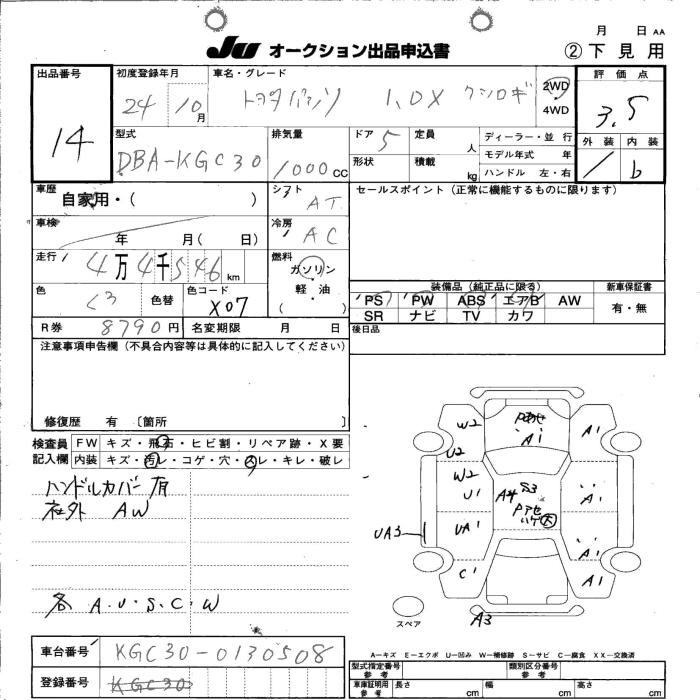 月 日 AA
JU オークション出品申込書 ② 下見用
出品番号 初度登録年月 車名・グレード 評価点
14 24 10月 トヨタ パッソ 1.0X クツロギ 2WD 4WD 3.5
型式 排気量 ドア 定員 ディーラー・並行 外装 内装
DBA-KGC30 1000 CC 5 人 モデル年式 年 b
形状 積載 kg ハンドル 左・右
車歴 自家用・( ) シフト AT セールスポイント(正常に機能するものに限ります)
車検 年 月( 日) 冷房 AC
走行 4万4千546 km 燃料 ガソリン 軽・油 ( )
色 色替 色コード X07
装備品(純正品に限る) 新車保証書
PS PW ABS エアB AW 有・無
SR ナビ TV カワ
R券 8790円 名変期限 月 日 後日品
注意事項申告欄(不具合内容等は具体的に記入してください)
修復歴 有 〔箇所 〕
検査員 記入欄 FW キズ・飛石・ヒビ割・リペア跡・X要
内装 キズ・汚レ・コゲ・穴・スレ・キレ・破レ
ハンドルカバー有
社外 AW
各 A.U.S.C.W
W2 A1 A1
U2
W2 U1 A4 S3 A1
UA3 UA1 A1
C1 A1
スペア A3
A-キズ E-エクボ U-凹み W-補修跡 S-サビ C-腐食 XX-交換済
車台番号 KGC30-0130508
登録番号 KGC30
型式指定番号 参考 類別区分番号 参考
車庫証明用 参考 長さ cm 幅 cm 高さ cm